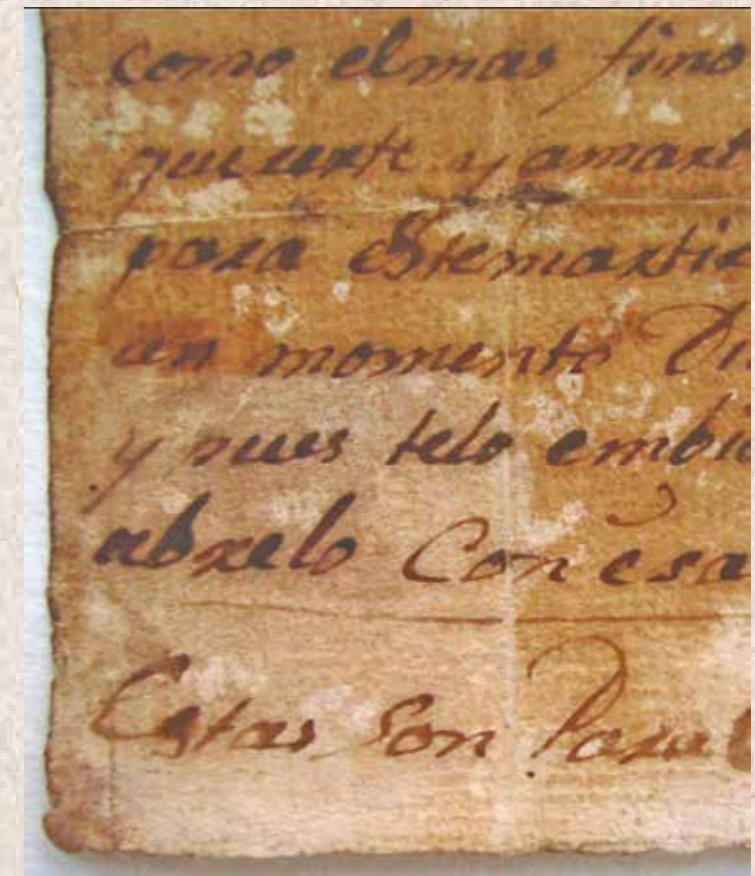 como elmas fino
quererte y amart
para estemartir
un momento
y pues telo embi
abrelo Con esa
Estas son Para